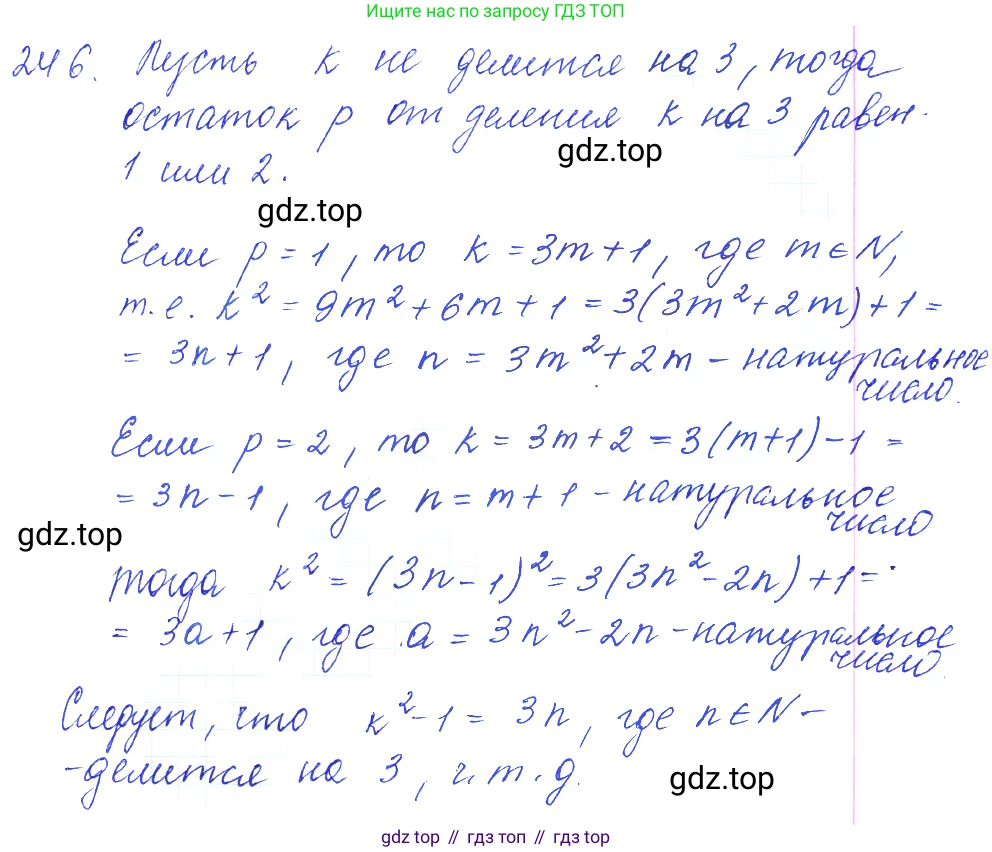 Ищите нас по запросу ГДЗ ТОП
246. Пусть k не делится на 3, тогда
остаток p от деления k на 3 равен
gdz.top
1 или 2.
gdz.top
Если p = 1, то k = 3m + 1, где m ∈ N,
т.е. k² = 9m² + 6m + 1 = 3(3m² + 2m) + 1 =
= 3n + 1, где n = 3m² + 2m – натуральное
число.
Если p = 2, то k = 3m + 2 = 3(m+1) – 1 =
= 3n – 1, где n = m + 1 – натуральное
число
gdz.top
тогда k² = (3n – 1)² = 3(3n² – 2n) + 1 =
= 3a + 1, где a = 3n² – 2n – натуральное
число.
Следует, что k² – 1 = 3n, где n ∈ N –
– делится на 3, ч.т.д.
gdz.top
gdz.top // гдз топ // гдз top